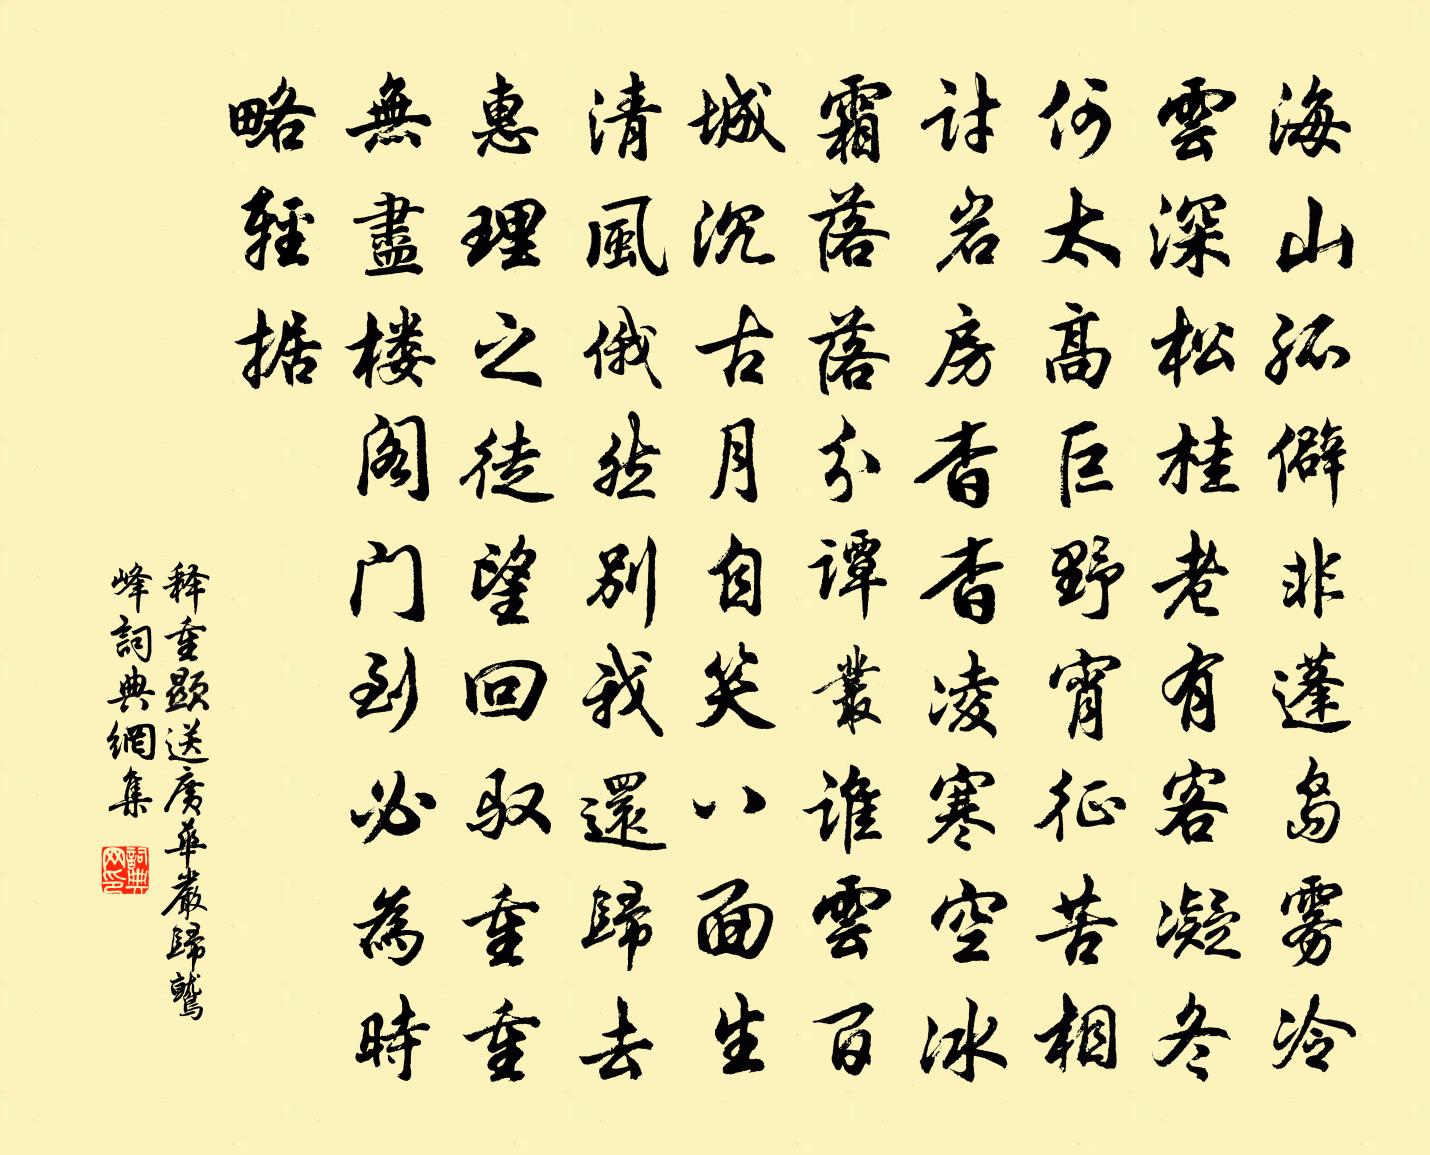 海山孤僻非蓬岛雾冷
雲深松桂老有客凝冬
何太高巨野宵征苦相
討岩房杳杳凌寒空冰
霜落落分譚叢誰雲百
城沉古月自笑八面生
清風俄然别我還歸去
惠理之徒望回驭重重
無盡楼阁门到必為時
略輕据
释重顯送廣華嚴歸鷲
峰詞典網集
詞典